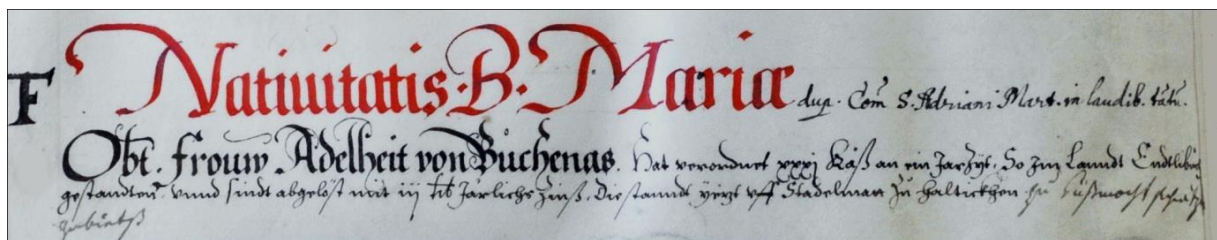 F Natiuitatis · B · Mariæ dup. Com̄ S. Adriani Mart. in laudib. tātū.
Obt. Frouw Adelheit von Bůchenas. Hat verordnet xxxj Käß an ein Jarzyt. So jm Lanndt Endtlibůch
gestandten, vnnd sindt abgelöst mit iij lib Järlichs Zinß. Die stanndt yetzt vff Stadelman zu Haltickhen zu Küßnacht
gebietß